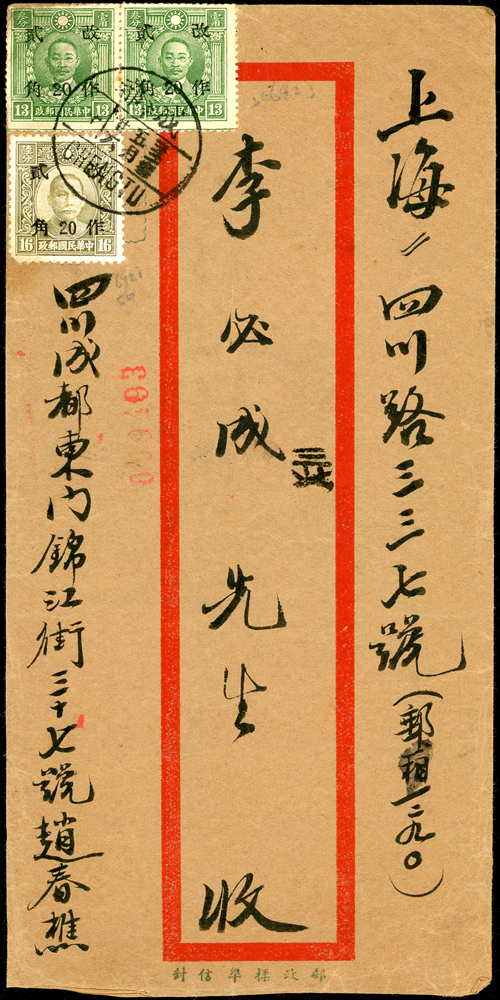 上海〃四川路三三七號(郵
李必成先生 收
四川成都東內錦江街三十七號趙春樵
郵政標準信封
改 貳
作 20 角
13 中華民國郵政 13
改 貳
作 20 角
13 中華民國郵政 13
貳
作 20 角
16 中華民國郵政 16
CHENGTU